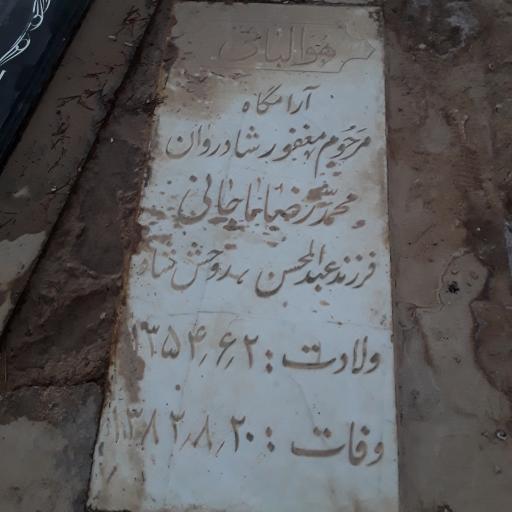 هوالباقی
آرامگاه
مرحوم مغفور شادروان
محمدرضا باباخانی
فرزند عبدالحسن روحش شاد
ولادت : ۱۳۵۴٫۶٫۲
وفات : ۱۳۸۳٫۸٫۲۰